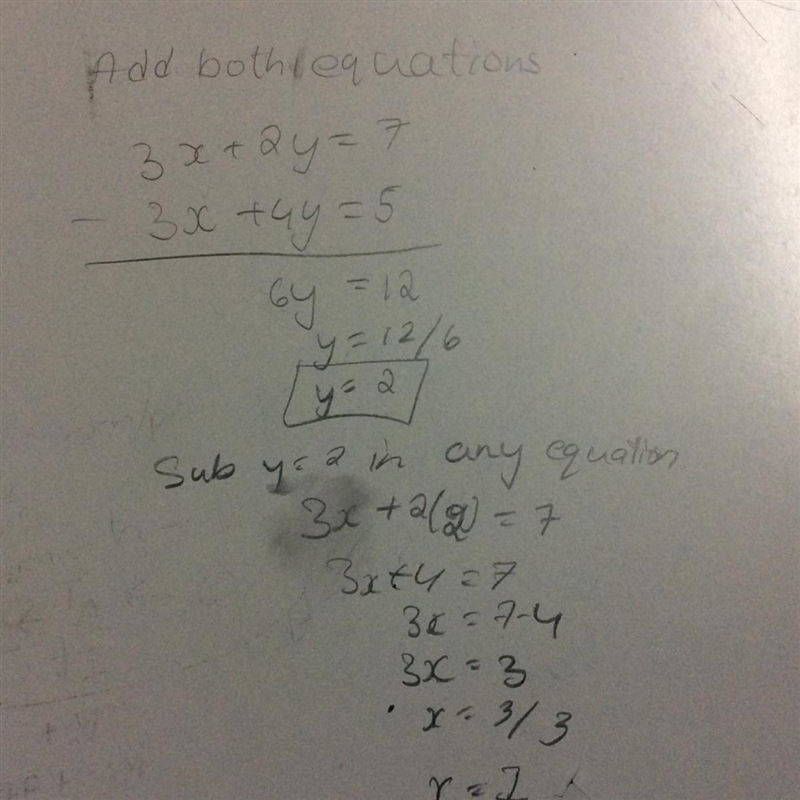 Add both equations
3x + 2y = 7
- 3x + 4y = 5
6y = 12
y = 12/6
y = 2
Sub y = 2 in any equation
3x + 2(2) = 7
3x + 4 = 7
3x = 7-4
3x = 3
x = 3/3
x = 1